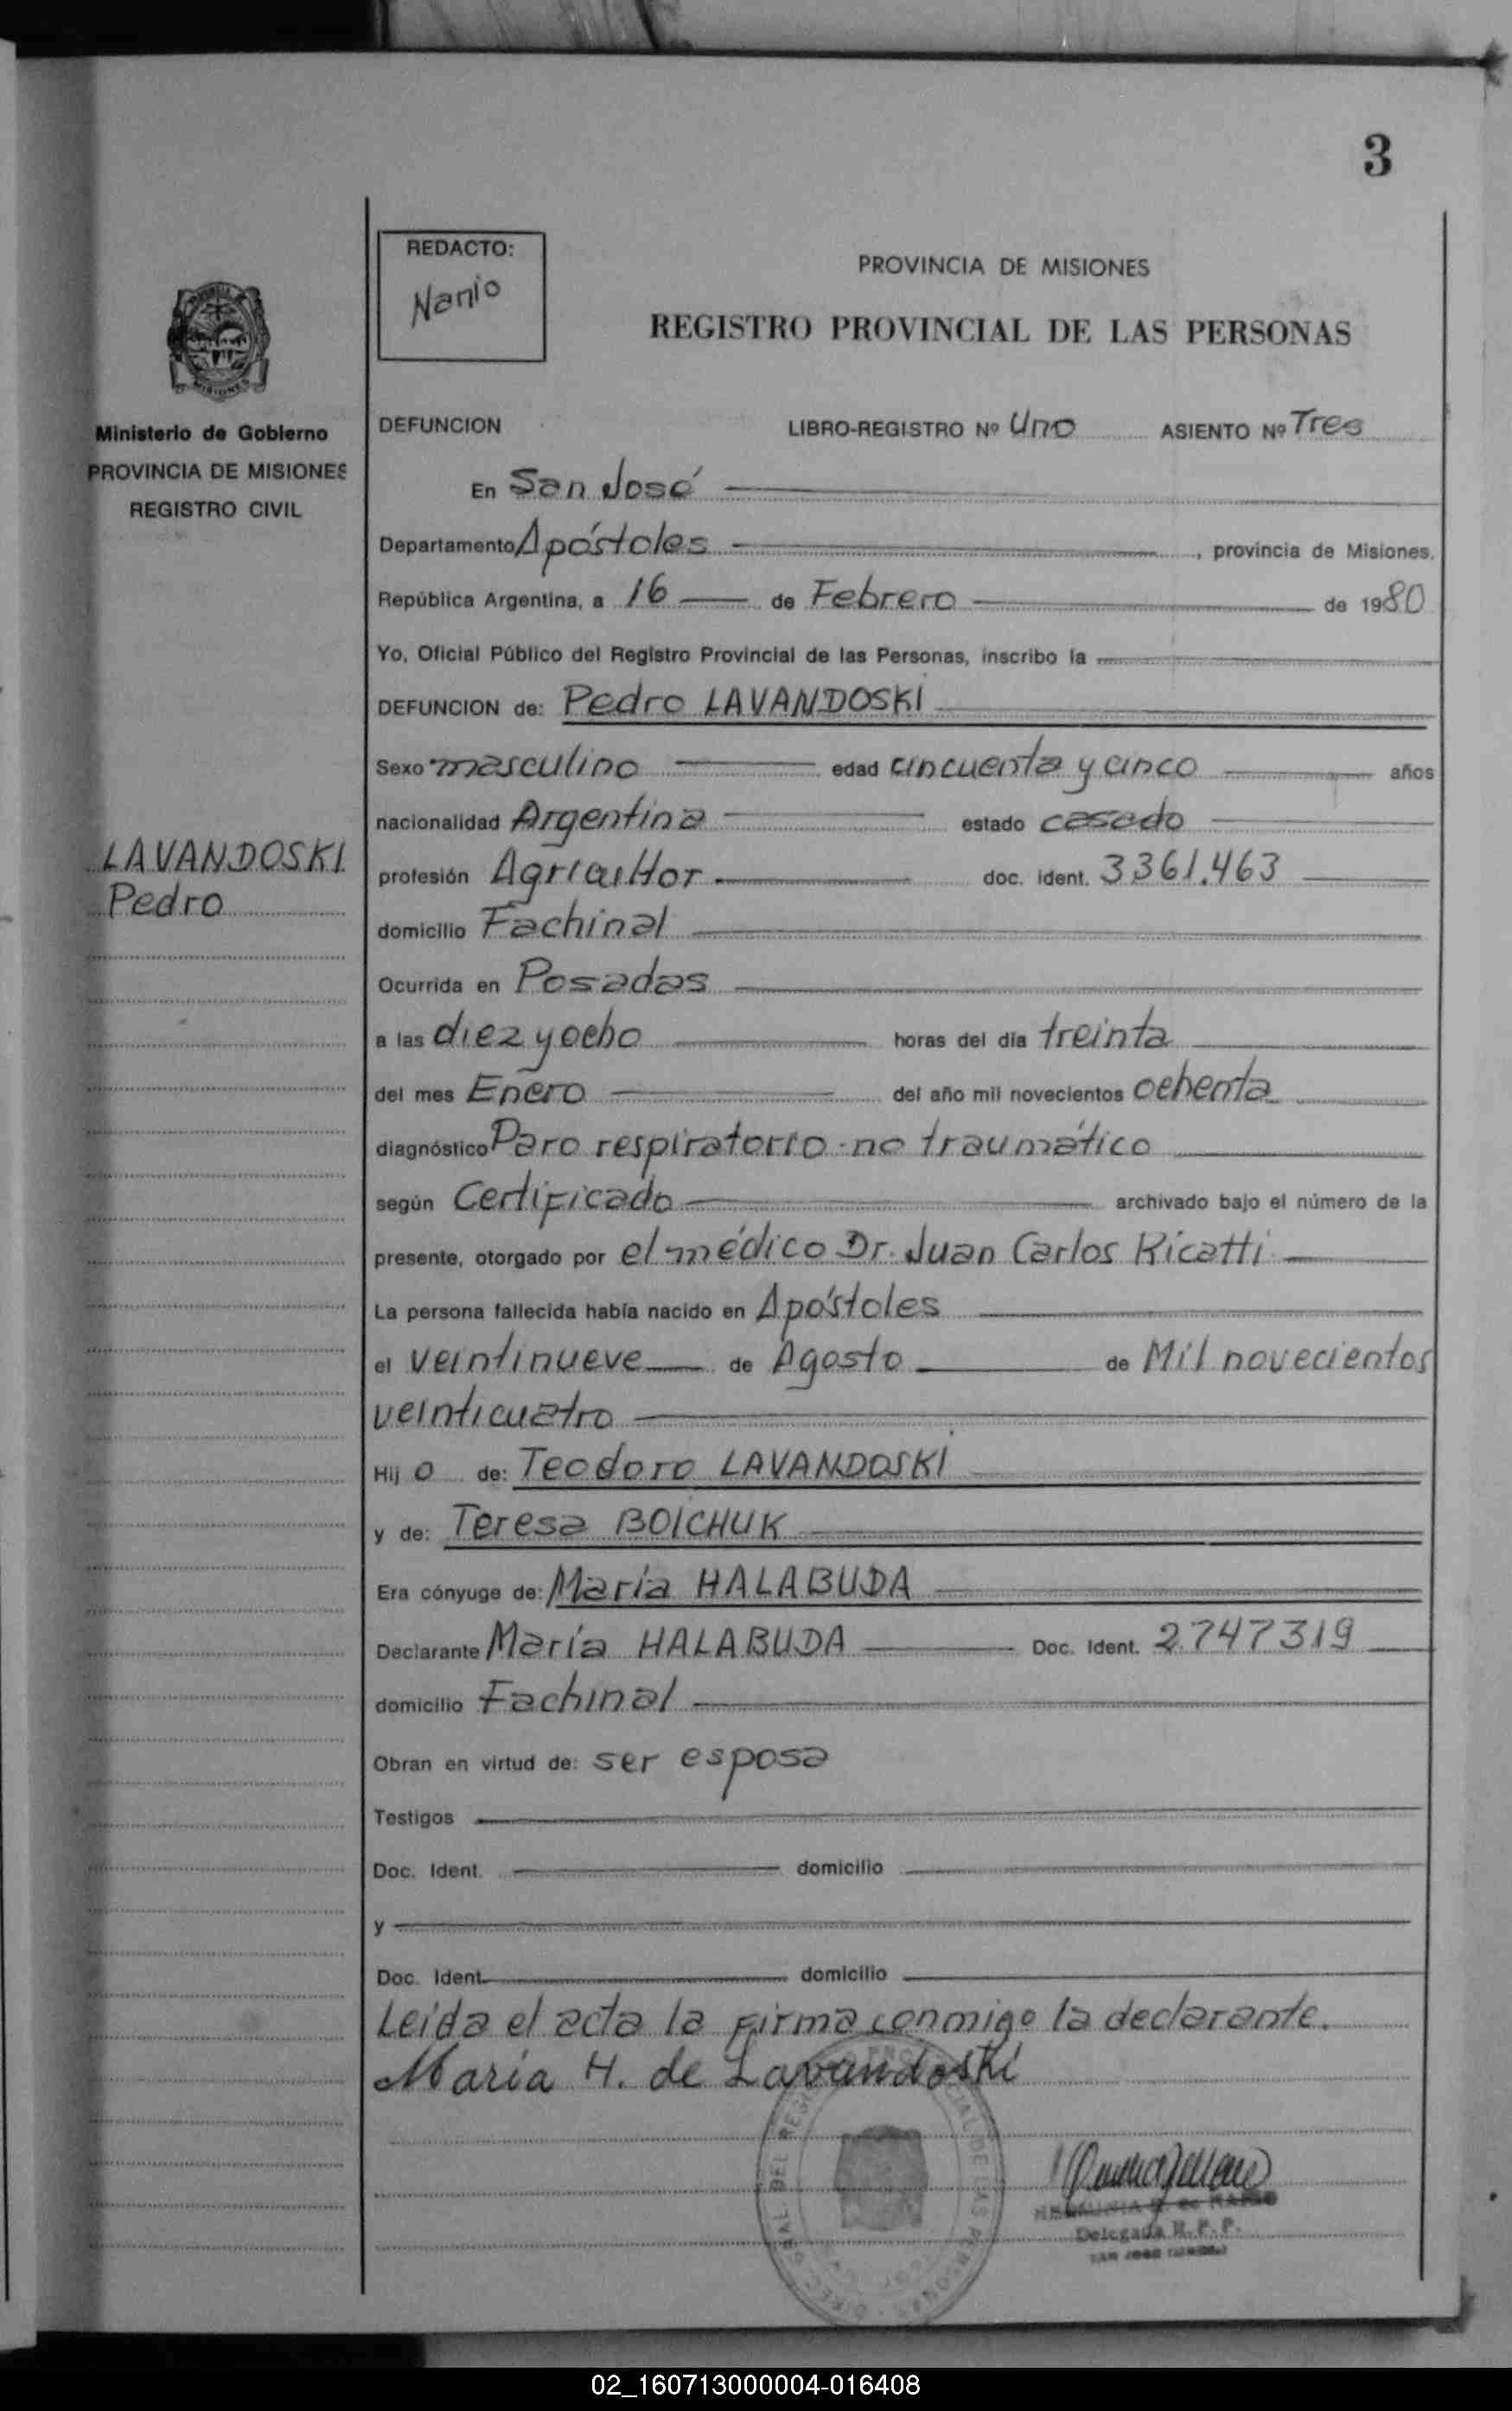 3
REDACTO:
Nanio
PROVINCIA DE MISIONES
REGISTRO PROVINCIAL DE LAS PERSONAS
Ministerio de Gobierno
PROVINCIA DE MISIONES
REGISTRO CIVIL
DEFUNCION LIBRO-REGISTRO Nº Uno ASIENTO Nº Tres
En San José
Departamento Apóstoles, provincia de Misiones,
República Argentina, a 16 de Febrero de 1980
Yo, Oficial Público del Registro Provincial de las Personas, inscribo la
DEFUNCION de: Pedro LAVANDOSKI
Sexo masculino edad cincuenta y cinco años
nacionalidad Argentina estado casado
LAVANDOSKI
Pedro
profesión Agricultor doc. ident. 3361.463
domicilio Fachinal
Ocurrida en Posadas
a las diez y ocho horas del día treinta
del mes Enero del año mil novecientos ochenta
diagnóstico Paro respiratorio no traumático
según Certificado archivado bajo el número de la
presente, otorgado por el médico Dr. Juan Carlos Ricatti
La persona fallecida había nacido en Apóstoles
el veintinueve de Agosto de Mil novecientos
veinticuatro
Hij o de: Teodoro LAVANDOSKI
y de: Teresa BOICHUK
Era cónyuge de: María HALABUDA
Declarante María HALABUDA Doc. Ident. 2.747319
domicilio Fachinal
Obran en virtud de: ser esposa
Testigos
Doc. Ident. domicilio
y
Doc. Ident. domicilio
Leída el acta la firma conmigo la declarante.
María H. de Lavandoski
Delegada R.P.P.
02_160713000004-016408